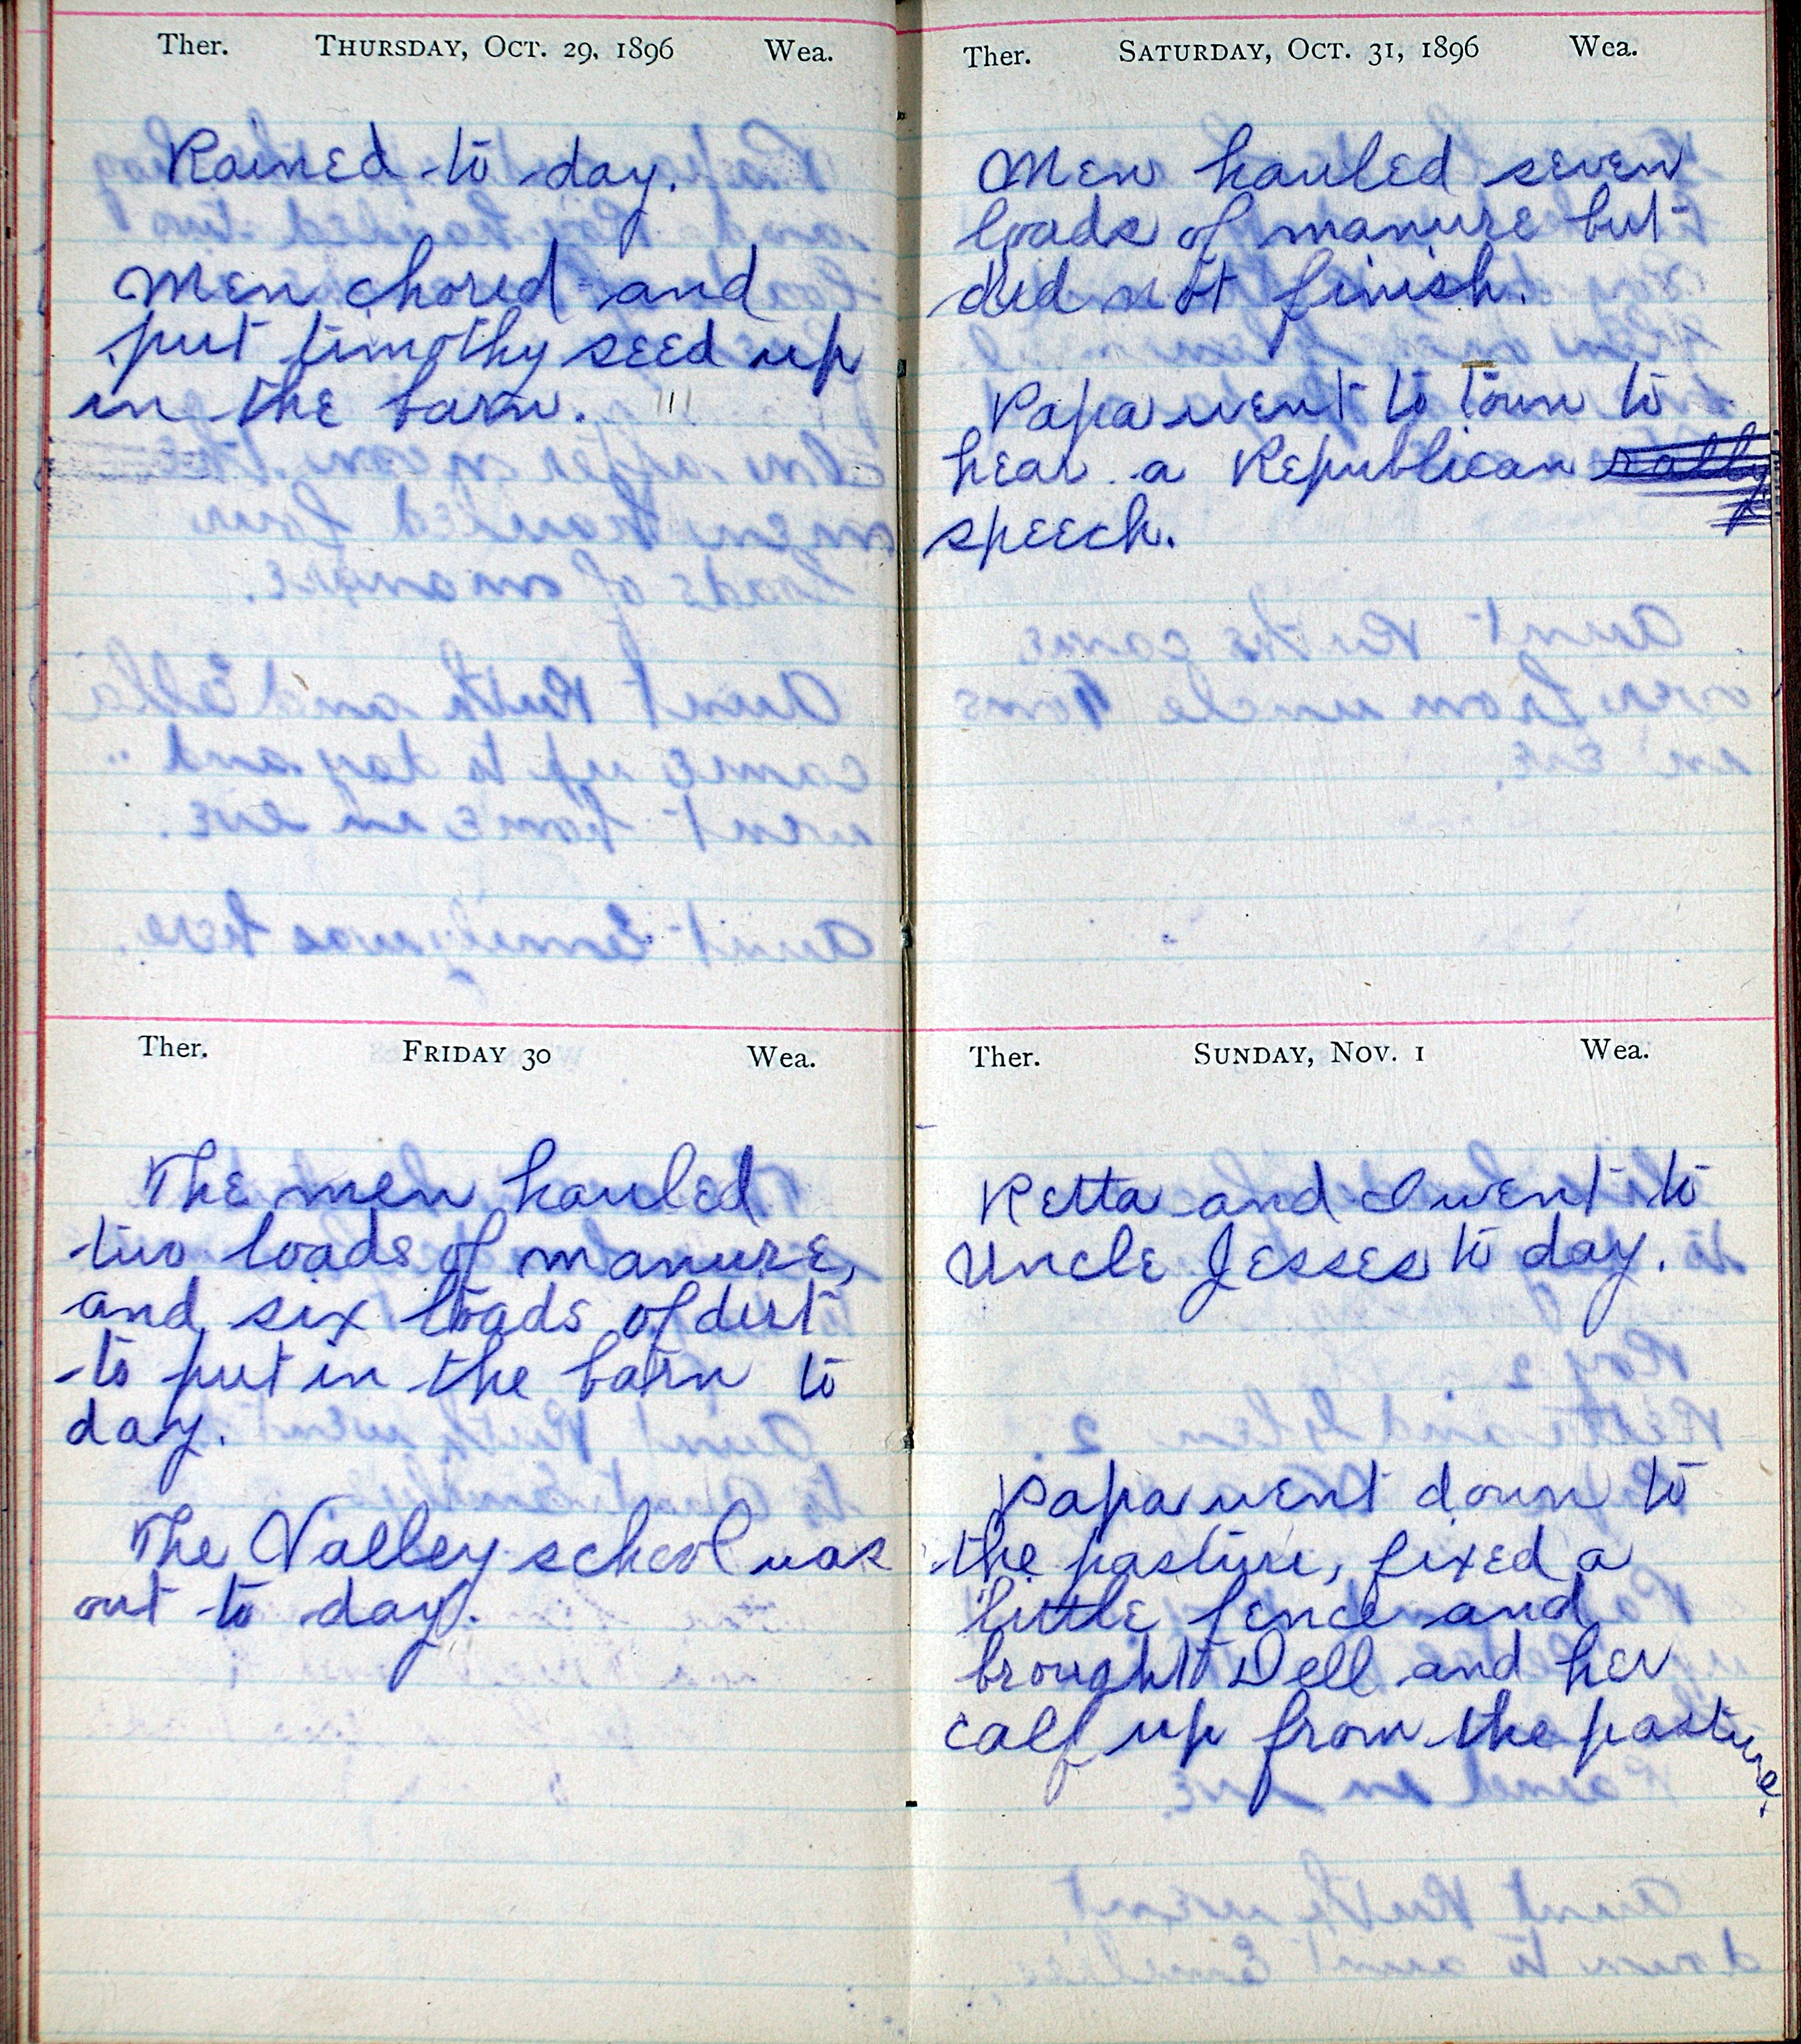 Ther. Thursday, Oct. 29, 1896 Wea.
Rained to day.
Men chored and
put timothy seed up
in the barn.
Ther. Friday 30 Wea.
The men hauled
two loads of manure,
and six loads of dirt
to put in the barn to
day.
The Valley school was
out to day.
Ther. Saturday, Oct. 31, 1896 Wea.
Men hauled seven
loads of manure but
did not finish.
Papa went to town to
hear a Republican rally
speech.
Ther. Sunday, Nov. 1 Wea.
Retta and I went to
Uncle Jesses to day.
Papa went down to
the pasture, fixed a
little fence and
brought Dell and her
calf up from the pasture.